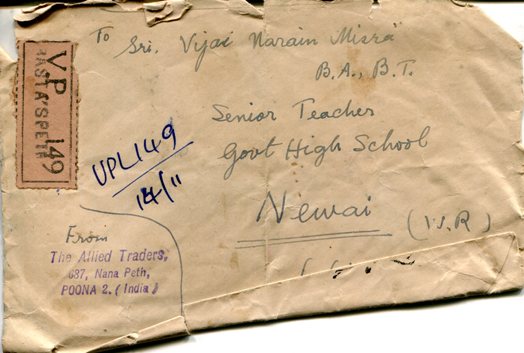 To Sri. Vijai Narain Misra
B.A., B.T.
Senior Teacher
Govt High School
Newai (W.R)
VP
RASTA'SPETH
149
VPL149
14/11
From
The Allied Traders,
637, Nana Peth,
POONA 2. (India)